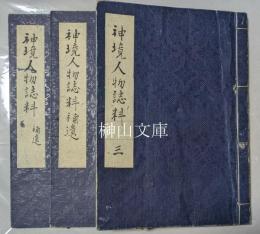 神境人物誌料 三
神境人物誌料補遺
神境人物誌料 補遺
榊山文庫